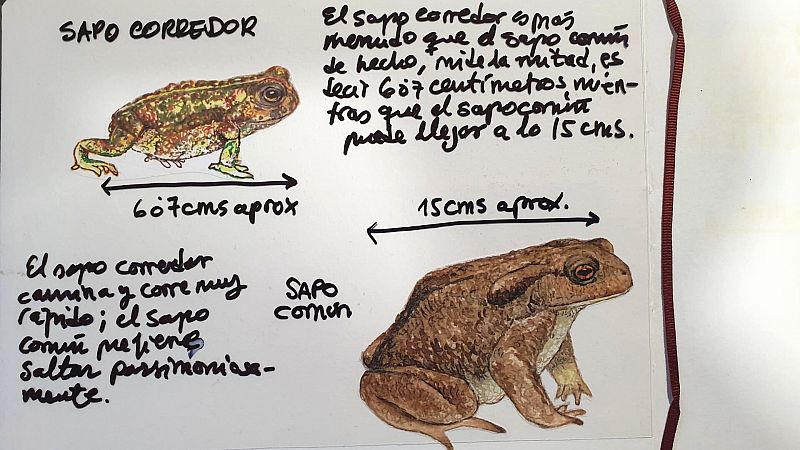 SAPO CORREDOR
El sapo corredor es más
menudo que el sapo común
de hecho, mide la mitad, es
decir 6 ó 7 centímetros, mien-
tras que el sapo común
puede llegar a lo 15 cms.
6 ó 7 cms aprox
15 cms aprox.
El sapo corredor
camina y corre muy
rápido; el sapo
común prefiere
saltar parsimoniosa-
mente.
SAPO
común